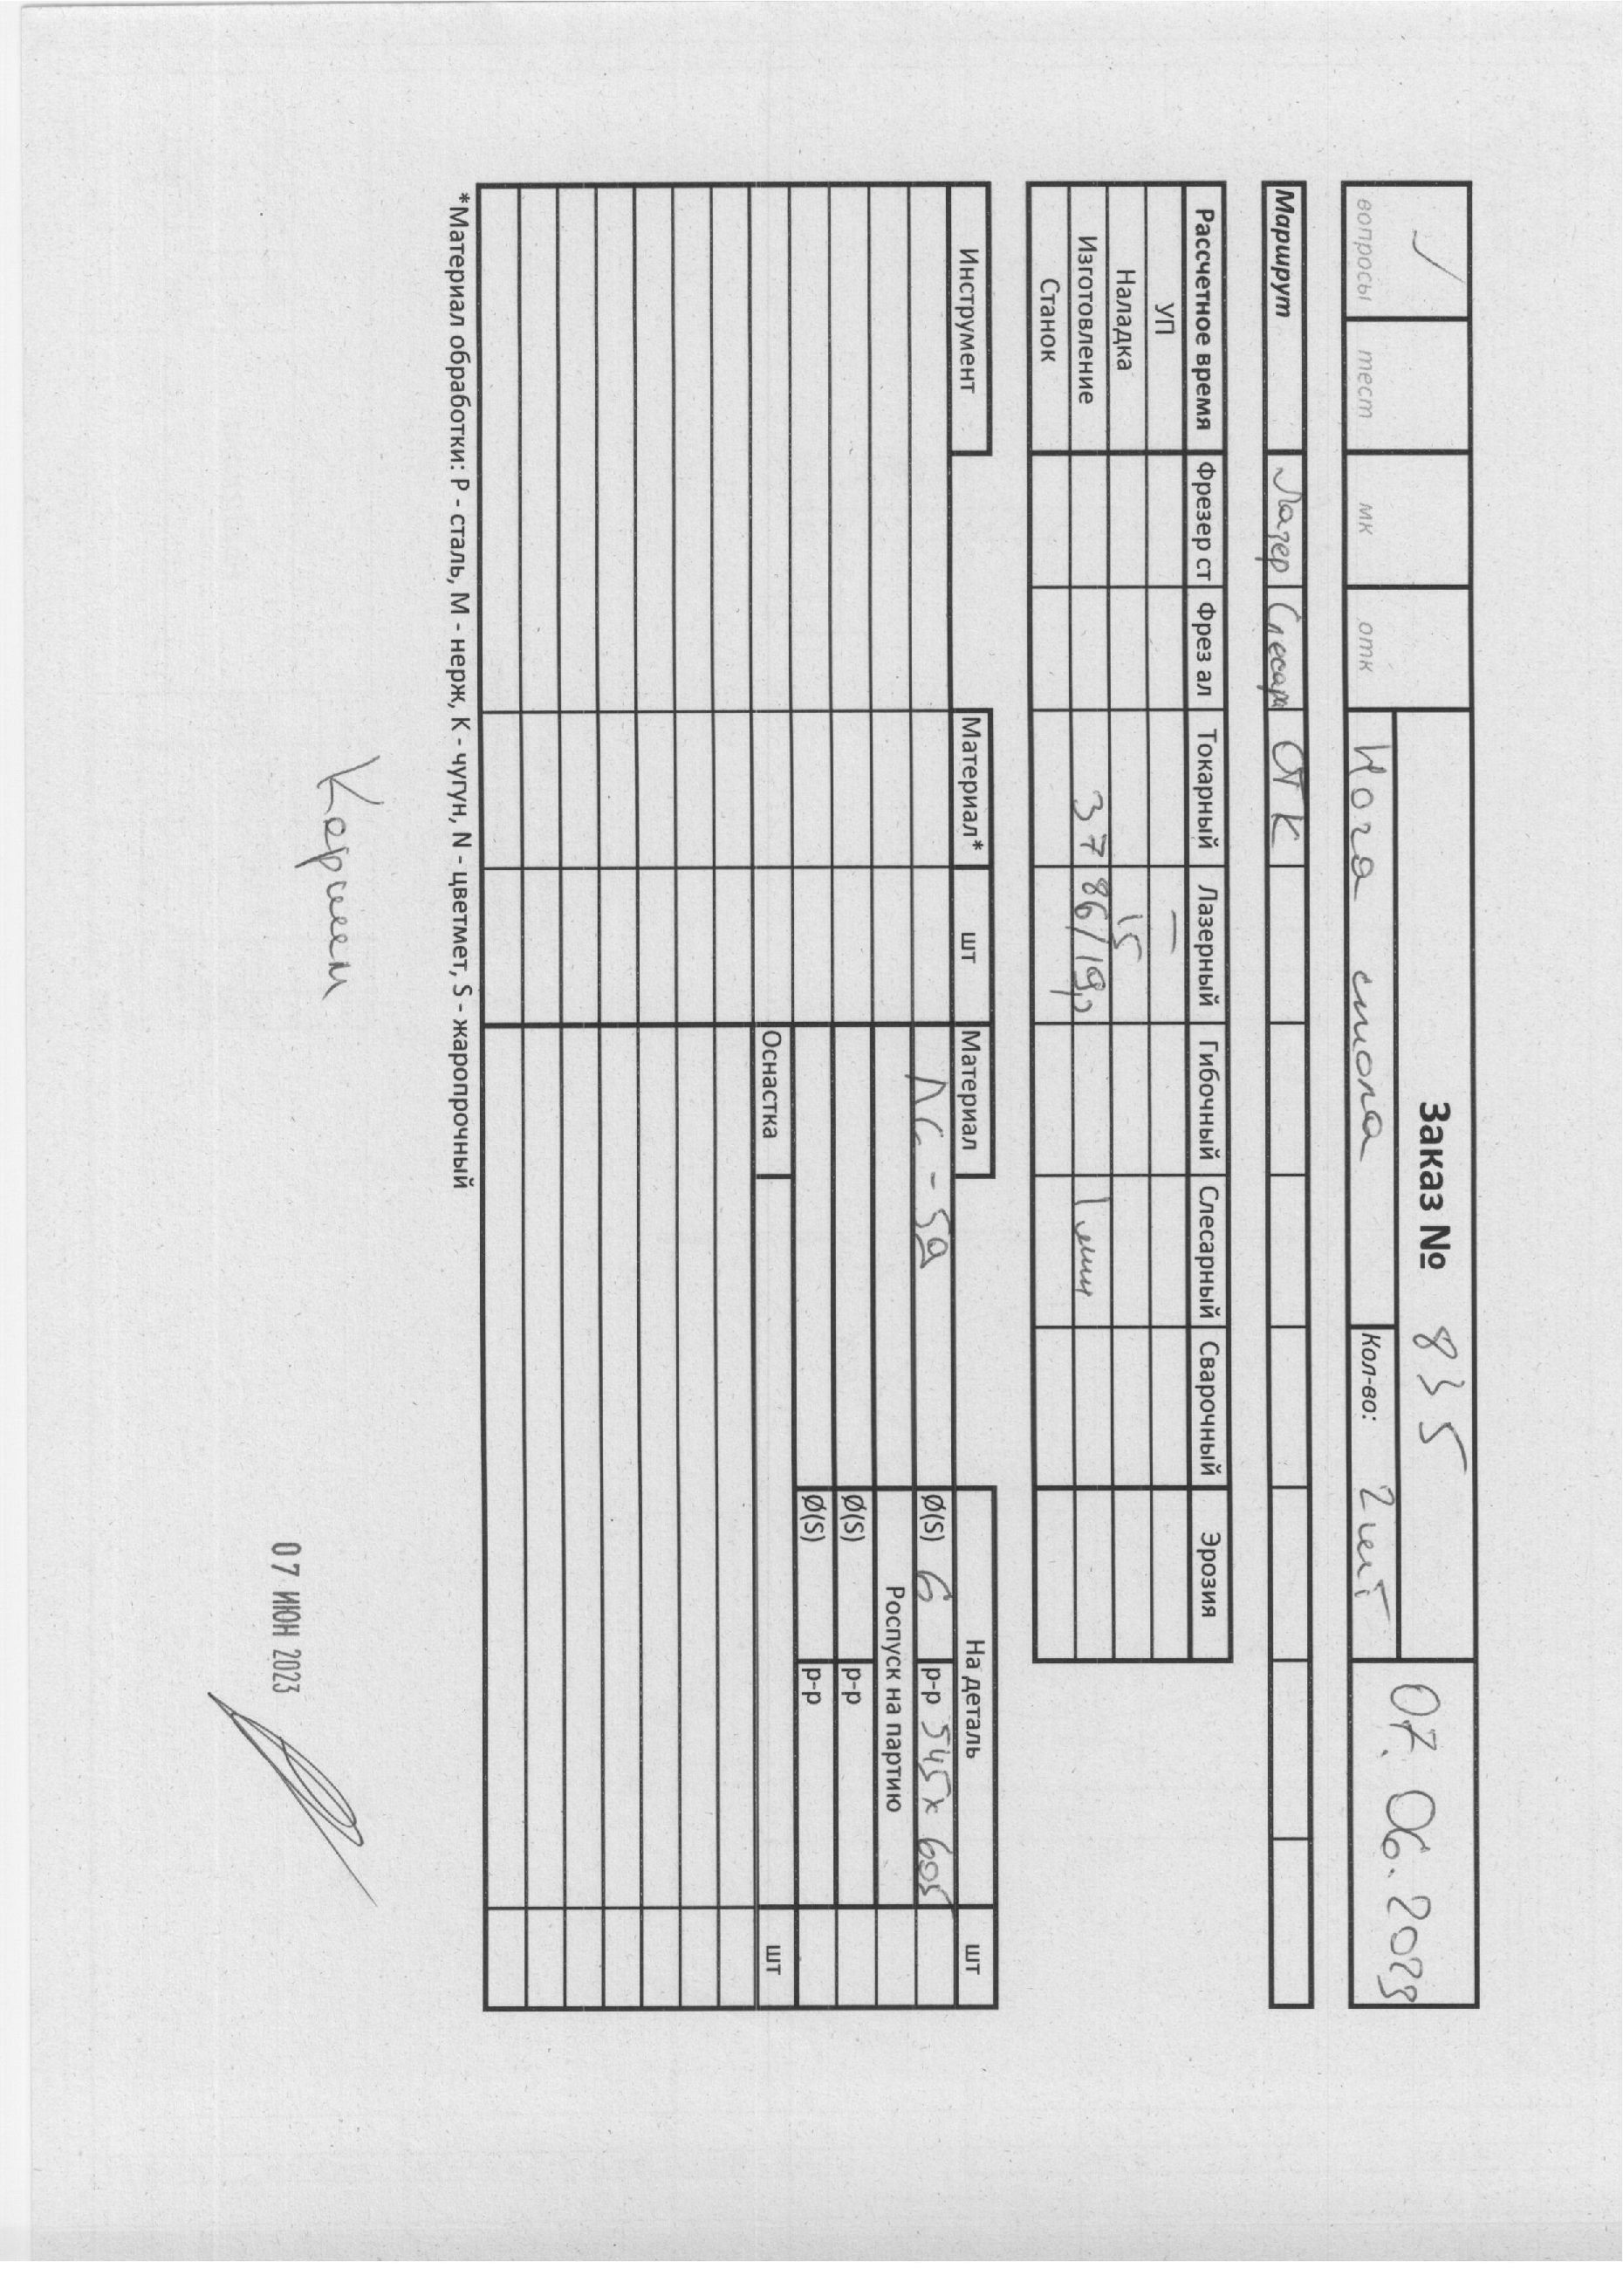 Заказ № 835
07.06.2023
вопросы тест мк отк
Нога стола Кол-во: 2 шт
Маршрут Лазер Слесарн ОТК
Рассчетное время Фрезер ст Фрез ал Токарный Лазерный Гибочный Слесарный Сварочный Эрозия
УП –
Наладка 15
Изготовление 37 86/19р 1 мин
Станок
Инструмент Материал* шт Материал На деталь шт
Ø(S) 6 р-р 545х605
Роспуск на партию
Ø(S) р-р
Ø(S) р-р
Оснастка шт
*Материал обработки: P - сталь, M - нерж, K - чугун, N - цветмет, S - жаропрочный
07 ИЮН 2023